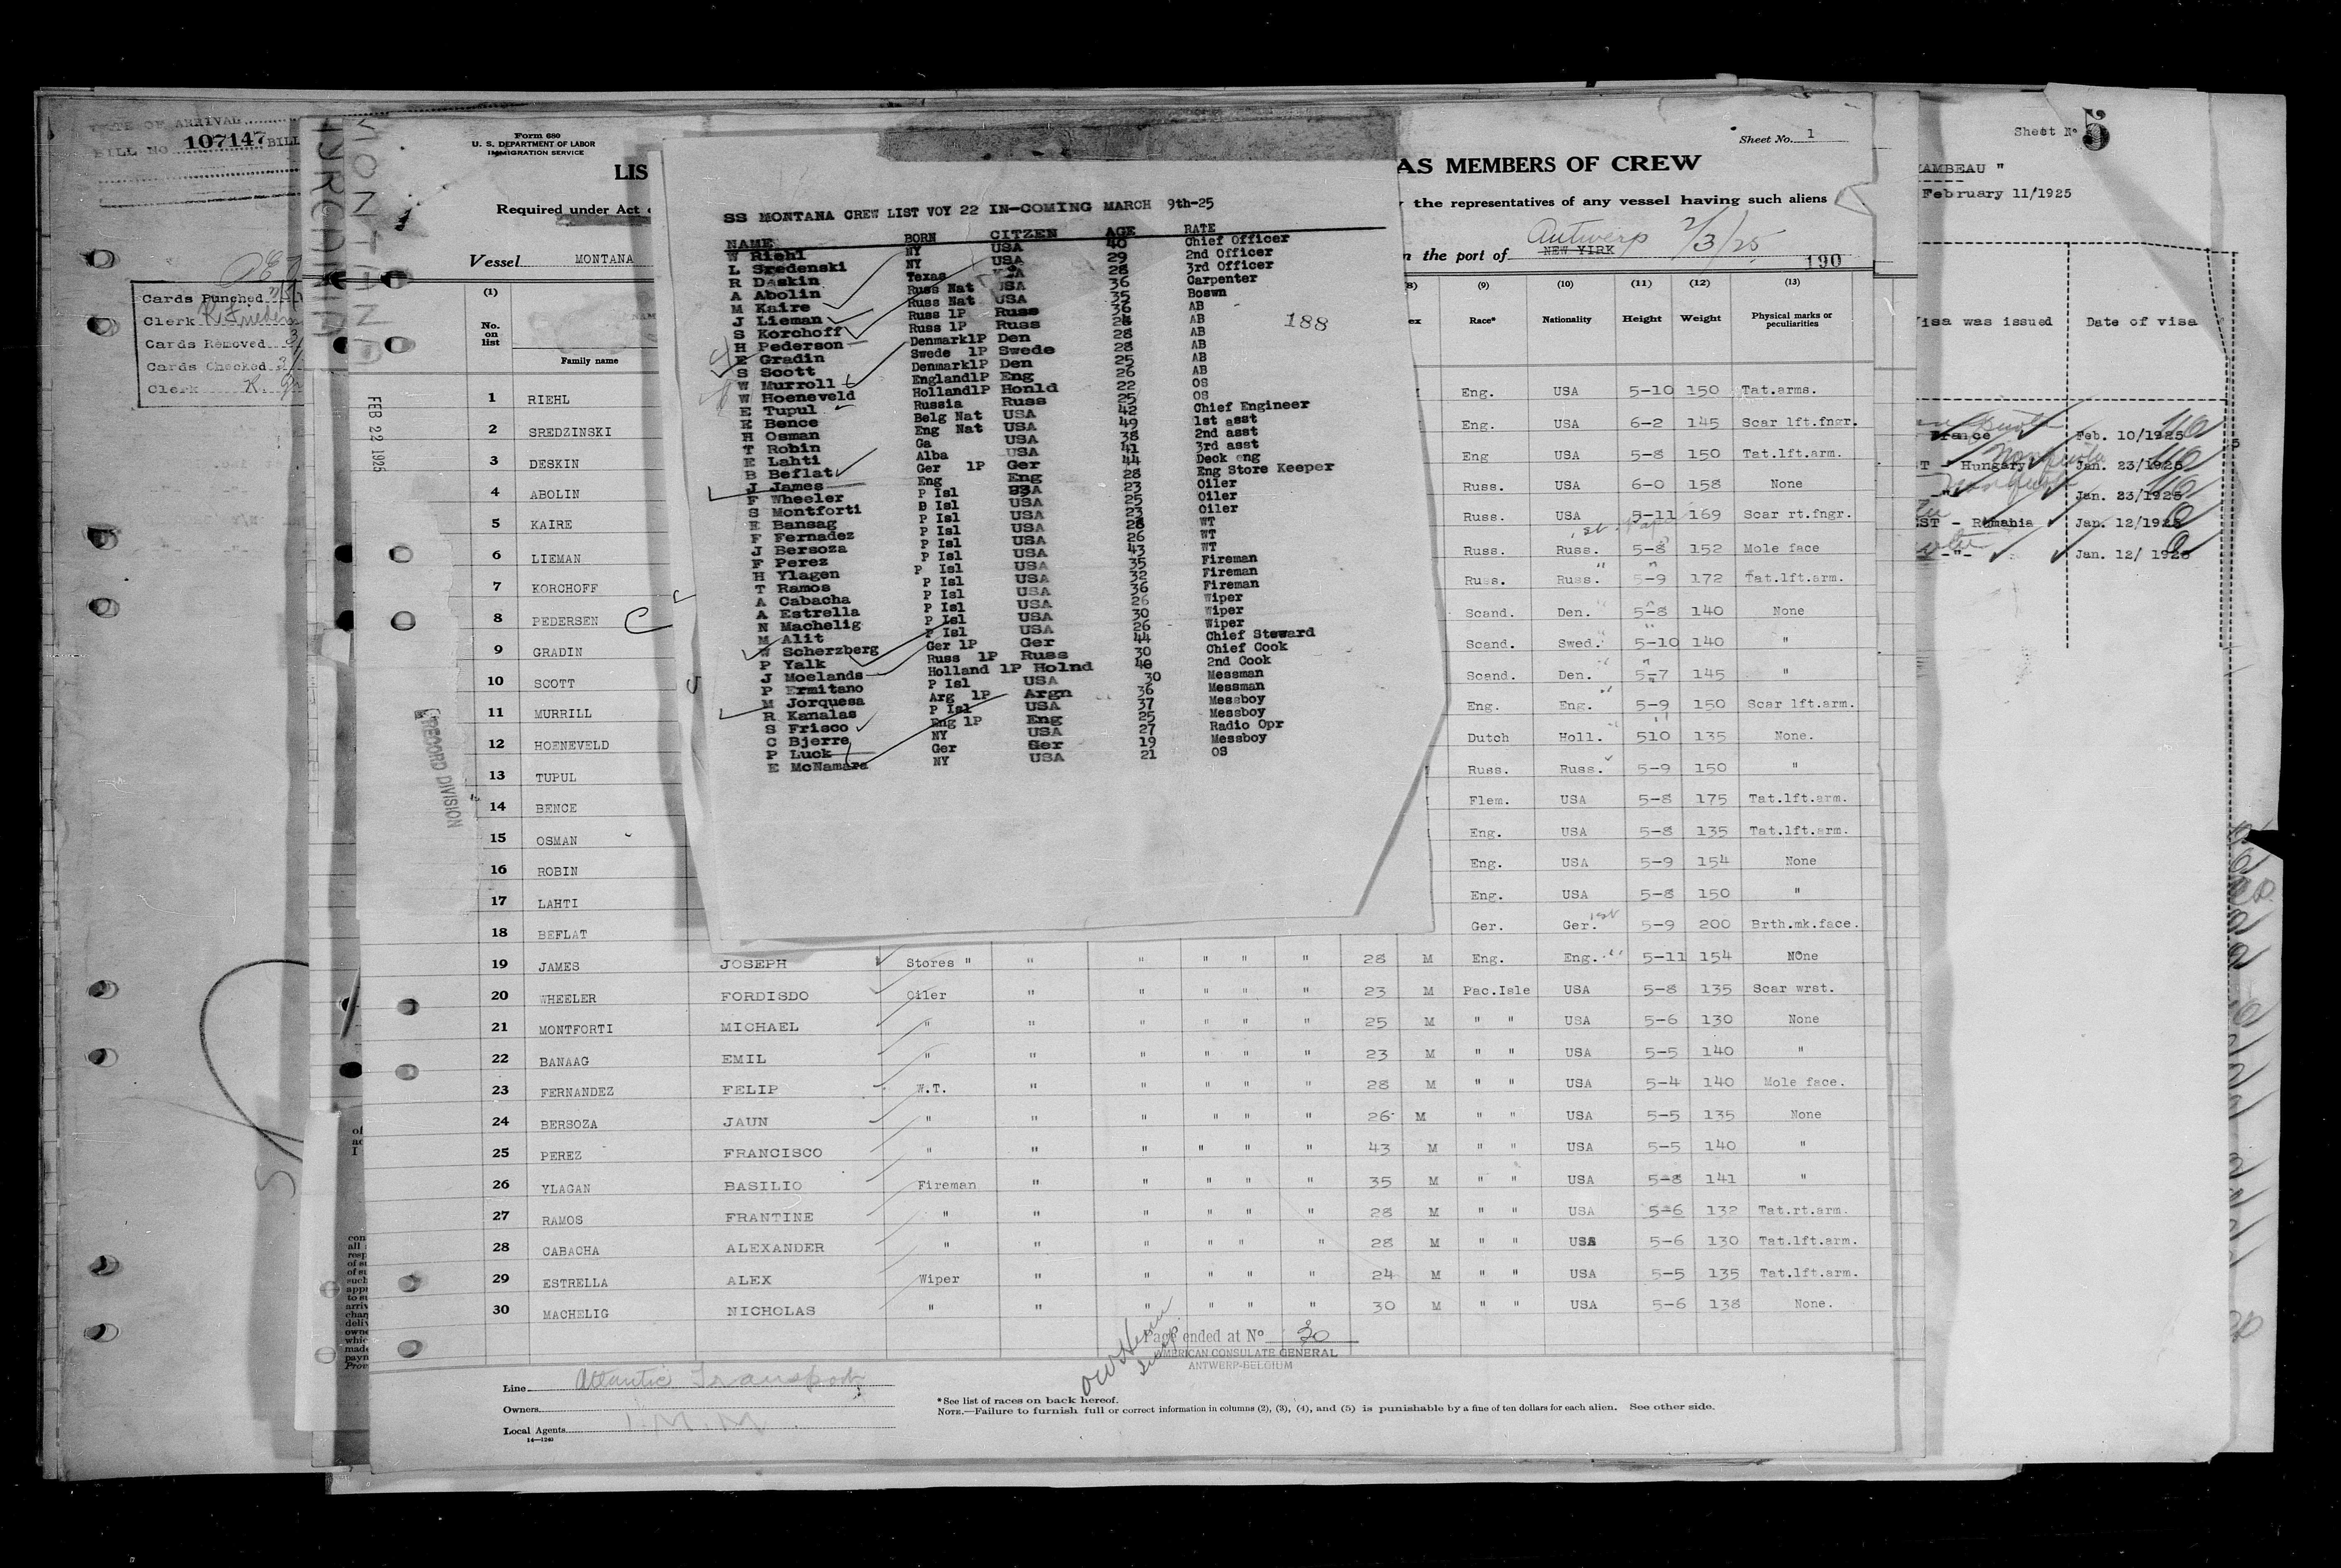 DATE OF ARRIVAL
BILL NO. 107147 BILL
Cards Punched
Clerk
Cards Removed
Cards Checked
Clerk K.
MONTANA
FEB 22 1925
RECORD DIVISION
Form 680
U. S. DEPARTMENT OF LABOR
IMMIGRATION SERVICE
Sheet No. 1
LIS
AS MEMBERS OF CREW
Required under Act
the representatives of any vessel having such aliens
Vessel MONTANA
the port of NEW YIRK Antwerp 2/3/25
190
SS MONTANA CREW LIST VOY 22 IN-COMING MARCH 9th-25
188
NAME BORN CITZEN AGE RATE
W Riehl NY USA 40 Chief Officer
L Sredenski NY USA 29 2nd Officer
R Daskin Texas USA 28 3rd Officer
A Abolin Russ Nat USA 36 Carpenter
M Kaire Russ Nat USA 35 Boswn
J Lieman Russ 1P Russ 36 AB
S Korchoff Russ 1P Russ 24 AB
H Pederson Denmark1P Den 28 AB
E Gradin Swede 1P Swede 28 AB
S Scott Denmark1P Den 25 AB
W Murroll England1P Eng 26 AB
W Hoeneveld Holland1P Honld 22 OS
E Tupul Russia Russ 25 OS
E Bence Belg Nat USA 42 Chief Engineer
H Osman Eng Nat USA 49 1st asst
T Robin Ga USA 38 2nd asst
E Lahti Alba USA 41 3rd asst
B Beflat Ger 1P Ger 44 Deck eng
J James Eng Eng 28 Eng Store Keeper
F Wheeler P Isl USA 23 Oiler
S Montforti P Isl USA 25 Oiler
E Bansag P Isl USA 23 Oiler
F Fernadez P Isl USA 28 WT
J Bersoza P Isl USA 26 WT
F Perez P Isl USA 43 WT
H Ylagen P Isl USA 35 Fireman
T Ramos P Isl USA 32 Fireman
A Cabacha P Isl USA 36 Fireman
A Estrella P Isl USA 26 Wiper
N Machelig P Isl USA 30 Wiper
M Alit P Isl USA 26 Wiper
W Scherzberg Ger 1P Ger 44 Chief Steward
P Yalk Russ 1P Russ 30 Chief Cook
J Moelands Holland 1P Holnd 40 2nd Cook
P Ermitano P Isl USA 30 Messman
M Jorquesa Arg 1P Argn 36 Messman
R Kanalas P Isl USA 37 Messboy
S Frisco Eng 1P Eng 25 Messboy
C Bjerre NY USA 27 Radio Opr
P Luck Ger Ger 19 Messboy
E McNamara NY USA 21 OS
(1) (9) (10) (11) (12) (13)
No. on list Family name Race* Nationality Height Weight Physical marks or peculiarities
1 RIEHL Eng. USA 5-10 150 Tat.arms.
2 SREDZINSKI Eng. USA 6-2 145 Scar lft.fngr.
3 DESKIN Eng USA 5-8 150 Tat.lft.arm.
4 ABOLIN Russ. USA 6-0 158 None
5 KAIRE Russ. USA 5-11 169 Scar rt.fngr.
6 LIEMAN Russ. Russ. 5-8 152 Mole face
7 KORCHOFF Russ. Russ. 5-9 172 Tat.lft.arm.
8 PEDERSEN Scand. Den. 5-8 140 None
9 GRADIN Scand. Swed. 5-10 140 "
10 SCOTT Scand. Den. 5-7 145 "
11 MURRILL Eng. Eng. 5-9 150 Scar lft.arm.
12 HOENEVELD Dutch Holl. 510 135 None.
13 TUPUL Russ. Russ. 5-9 150 "
14 BENCE Flem. USA 5-8 175 Tat.lft.arm.
15 OSMAN Eng. USA 5-8 135 Tat.lft.arm.
16 ROBIN Eng. USA 5-9 154 None
17 LAHTI Eng. USA 5-8 150 "
18 BEFLAT Ger. Ger. 5-9 200 Brth.mk.face.
19 JAMES JOSEPH Stores " " " " " " 28 M Eng. Eng. 5-11 154 NOne
20 WHEELER FORDISDO Oiler " " " " " 23 M Pac.Isle USA 5-8 135 Scar wrst.
21 MONTFORTI MICHAEL " " " " " " 25 M " " USA 5-6 130 None
22 BANAAG EMIL " " " " " " 23 M " " USA 5-5 140 "
23 FERNANDEZ FELIP W.T. " " " " " 28 M " " USA 5-4 140 Mole face.
24 BERSOZA JAUN " " " " " " 26 M " " USA 5-5 135 None
25 PEREZ FRANCISCO " " " " " " 43 M " " USA 5-5 140 "
26 YLAGAN BASILIO Fireman " " " " " 35 M " " USA 5-8 141 "
27 RAMOS FRANTINE " " " " " " 28 M " " USA 5-6 132 Tat.rt.arm.
28 CABACHA ALEXANDER " " " " " " 28 M " " USA 5-6 130 Tat.lft.arm.
29 ESTRELLA ALEX Wiper " " " " " 24 M " " USA 5-5 135 Tat.lft.arm.
30 MACHELIG NICHOLAS " " " " " " 30 M " " USA 5-6 138 None.
Page ended at No 30
AMERICAN CONSULATE GENERAL
ANTWERP-BELGIUM
Line Atlantic Transport
Owners I.M.M
Local Agents
14—1240
*See list of races on back hereof.
NOTE.—Failure to furnish full or correct information in columns (2), (3), (4), and (5) is punishable by a fine of ten dollars for each alien. See other side.
Sheet No 5
February 11/1925
visa was issued Date of visa
France Feb. 10/1925
Hungary Jan. 23/1925
" Jan. 23/1925
- Romania Jan. 12/1925
-"- Jan. 12/ 1925